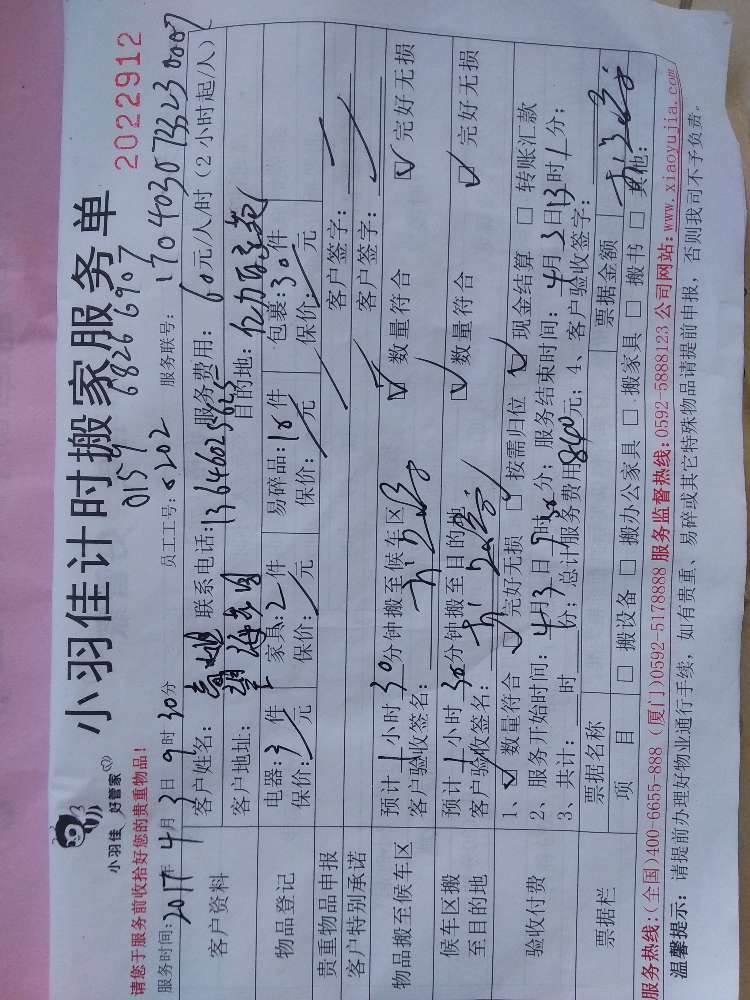 小羽佳 好管家
小羽佳计时搬家服务单
2022912
请您于服务前收拾好您的贵重物品!
0159 68266907
服务时间:2017年4月3日9时30分 员工工号:0202 服务联号:1704030733230007
客户资料
客户姓名: 联系电话: 服务费用:60元/人/时(2小时起/人)
客户地址: 目的地:
物品登记
电器:3件 家具:2件 易碎品:10件 包裹:30件
保价:/元 保价:/元 保价:/元 保价:/元
贵重物品申报 客户签字:
客户特别承诺 客户签字:
物品搬至候车区
预计1小时30分钟搬至候车区 ☑数量符合 ☑完好无损
客户验收签名:
候车区搬至目的地
预计1小时30分钟搬至目的地 ☑数量符合 ☑完好无损
客户验收签名:
验收付费
1、☑数量符合 □完好无损 □按需归位 ☑现金结算 □转账汇款
2、服务开始时间:4月3日 时 分; 服务结束时间:4月3日13时1分;
3、共计: 时 份; 总计服务费用840元; 4、客户验收签字:
票据栏
票据名称 票据金额
项目 □搬设备 □搬办公家具 □搬家具 □搬书 □其他:
服务热线:(全国)400-6655-888 (厦门)0592-5178888 服务监督热线:0592-5888123 公司网站:www.xiaoyujia.com
温馨提示:请提前办理好物业通行手续,如有贵重、易碎或其它特殊物品请提前申报,否则我司不予负责。